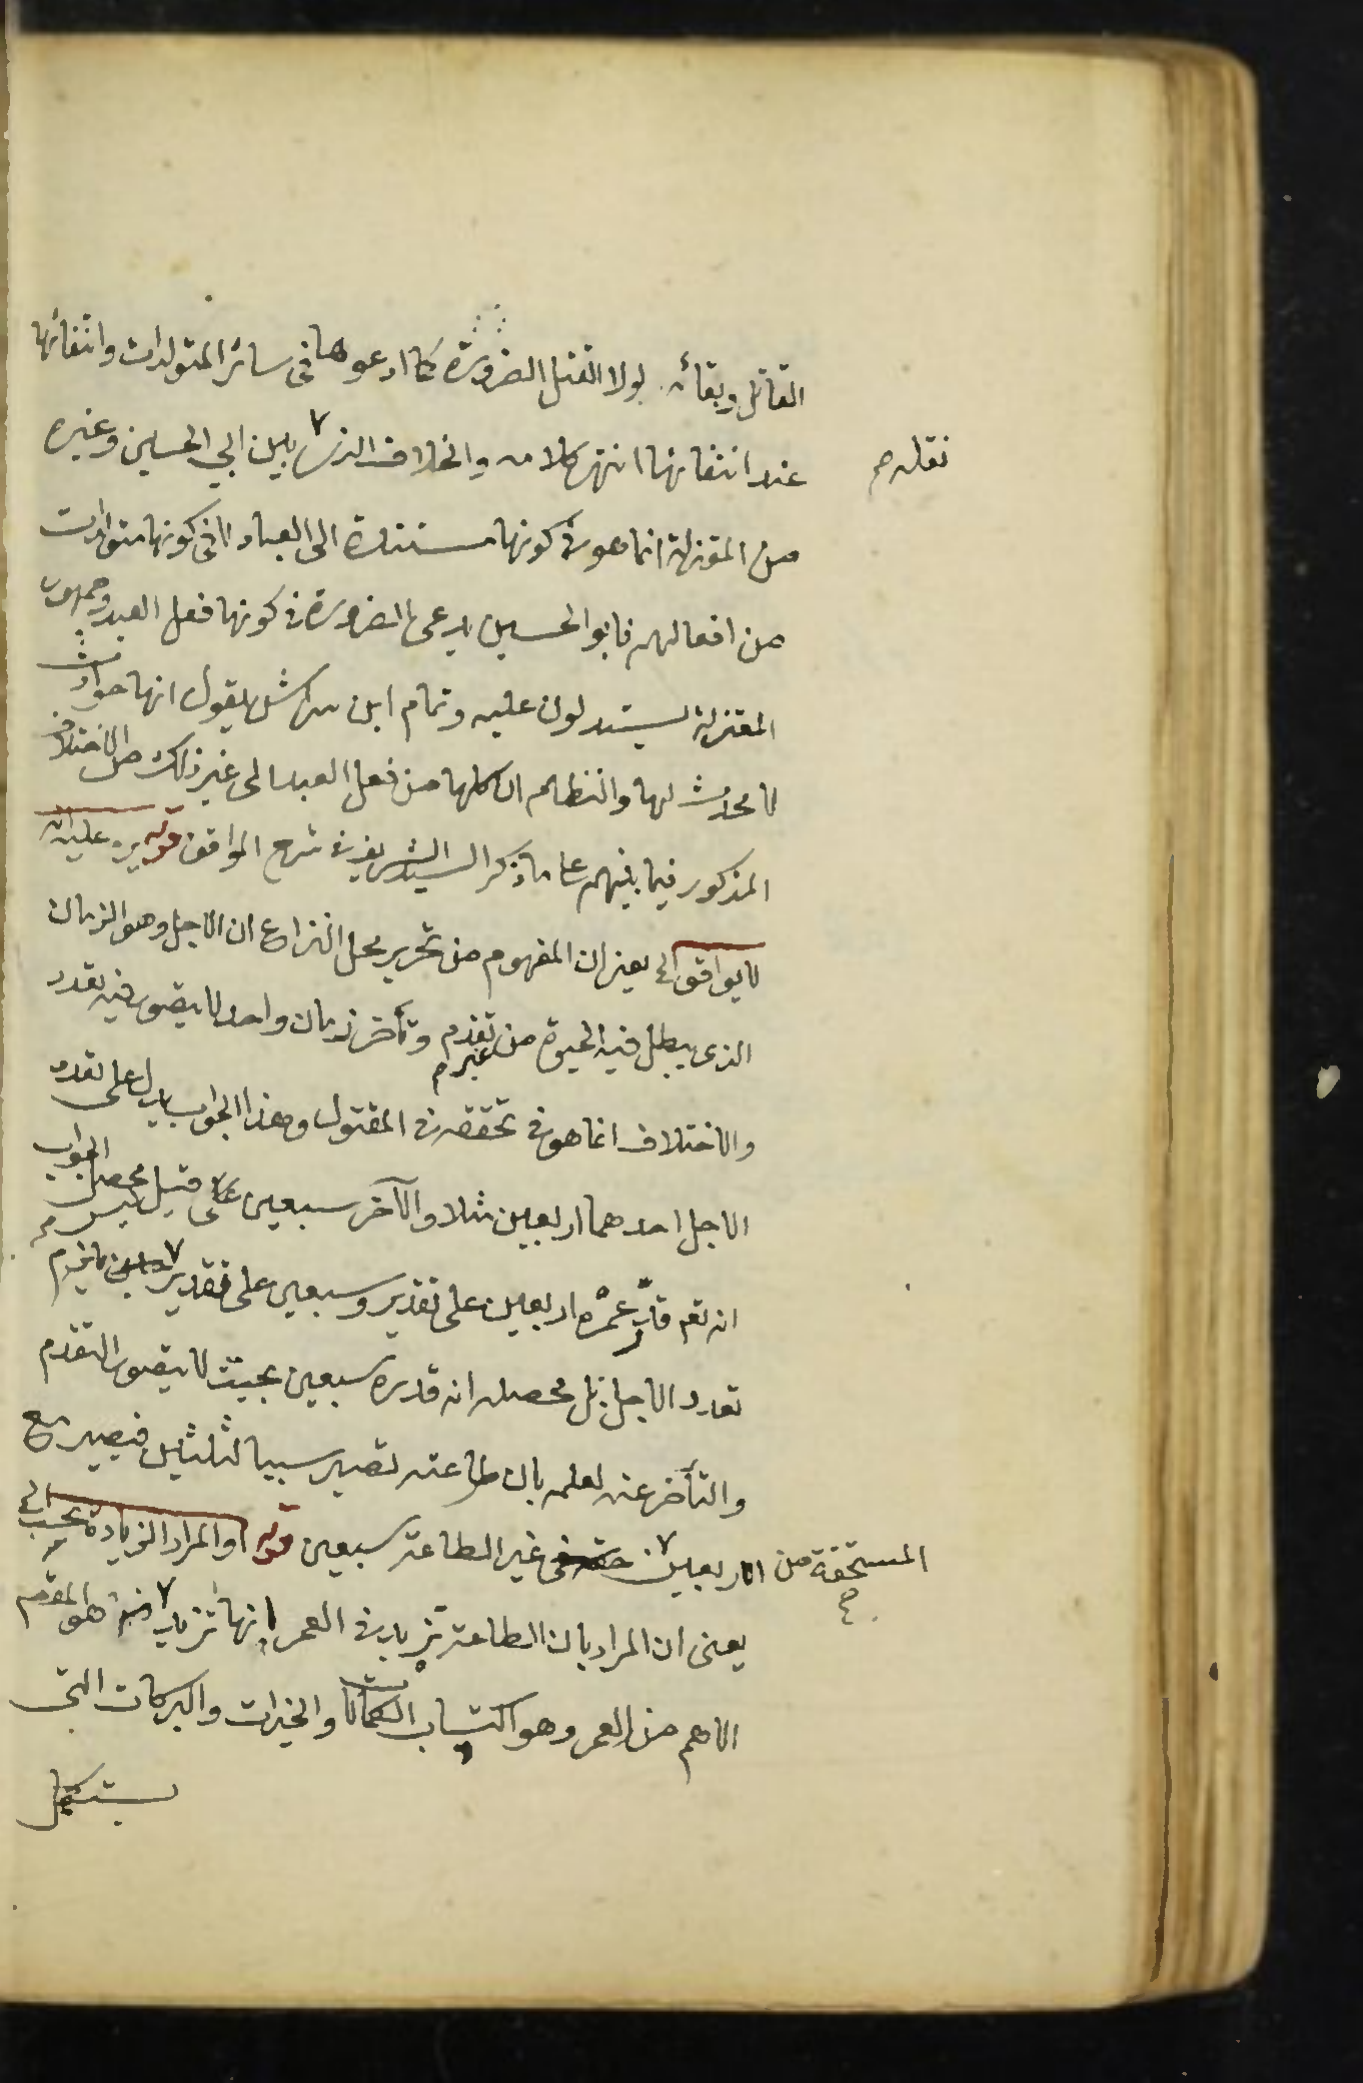 القاتل وبقائه لولا القتل الضرورة كما ادعوها فى سائر المتولدات وانتفائها
عند انتفائها انتهى كلامه والخلاف الذى بين ابي الحسين وغيره
نقله م
من المعتزلة انما هو فى كونها مستندة الى العباد لا فى كونها متولدات
من افعالهم فابو الحسين يدعى الضرورة فى كونها فعل العبد وجمهور
المعتزلة يستدلون عليه وثمام ابن يقول انها حوادث
لا محدث لها والنظام ان كلها من فعل العبد الى غير ذلك من الاختلاف
المذكور فيما بينهم على ما ذكر السيد الشريف فى شرح المواقف قوله يرد عليه انه
لا يوافق الى يعنى ان المفهوم من تحرير محل النزاع ان الاجل وهو الزمان
الذى يبطل فيه الحيوة من غير تقدم وتأخر زمان واحد لا يتصور فيه تعدد
والاختلاف انما هو فى تحققه فى المقتول وهذا الجواب يدل على تعدد
الاجل احدهما اربعين مثلا والآخر سبعين قيل ليس محصل الجواب
انه تعم قدر عمره اربعين على تقدير وسبعين على تقدير
تعدد الاجل بل محصله انه قدره سبعين بحيث لا يتصور التقدم
والتأخر عنه لعلمه بان طاعته تصير سببا لثلثين فيصير مع
المستحقة من الاربعين غير الطاعة سبعين قوله او المراد الزيادة بحسب الى
يعنى ان المراد بان الطاعة تزيد فى العمر انها تزيد هو المقدم
الاهم من العمر وهو اكتساب الكمالات والخيرات والبركات التى
يستكمل